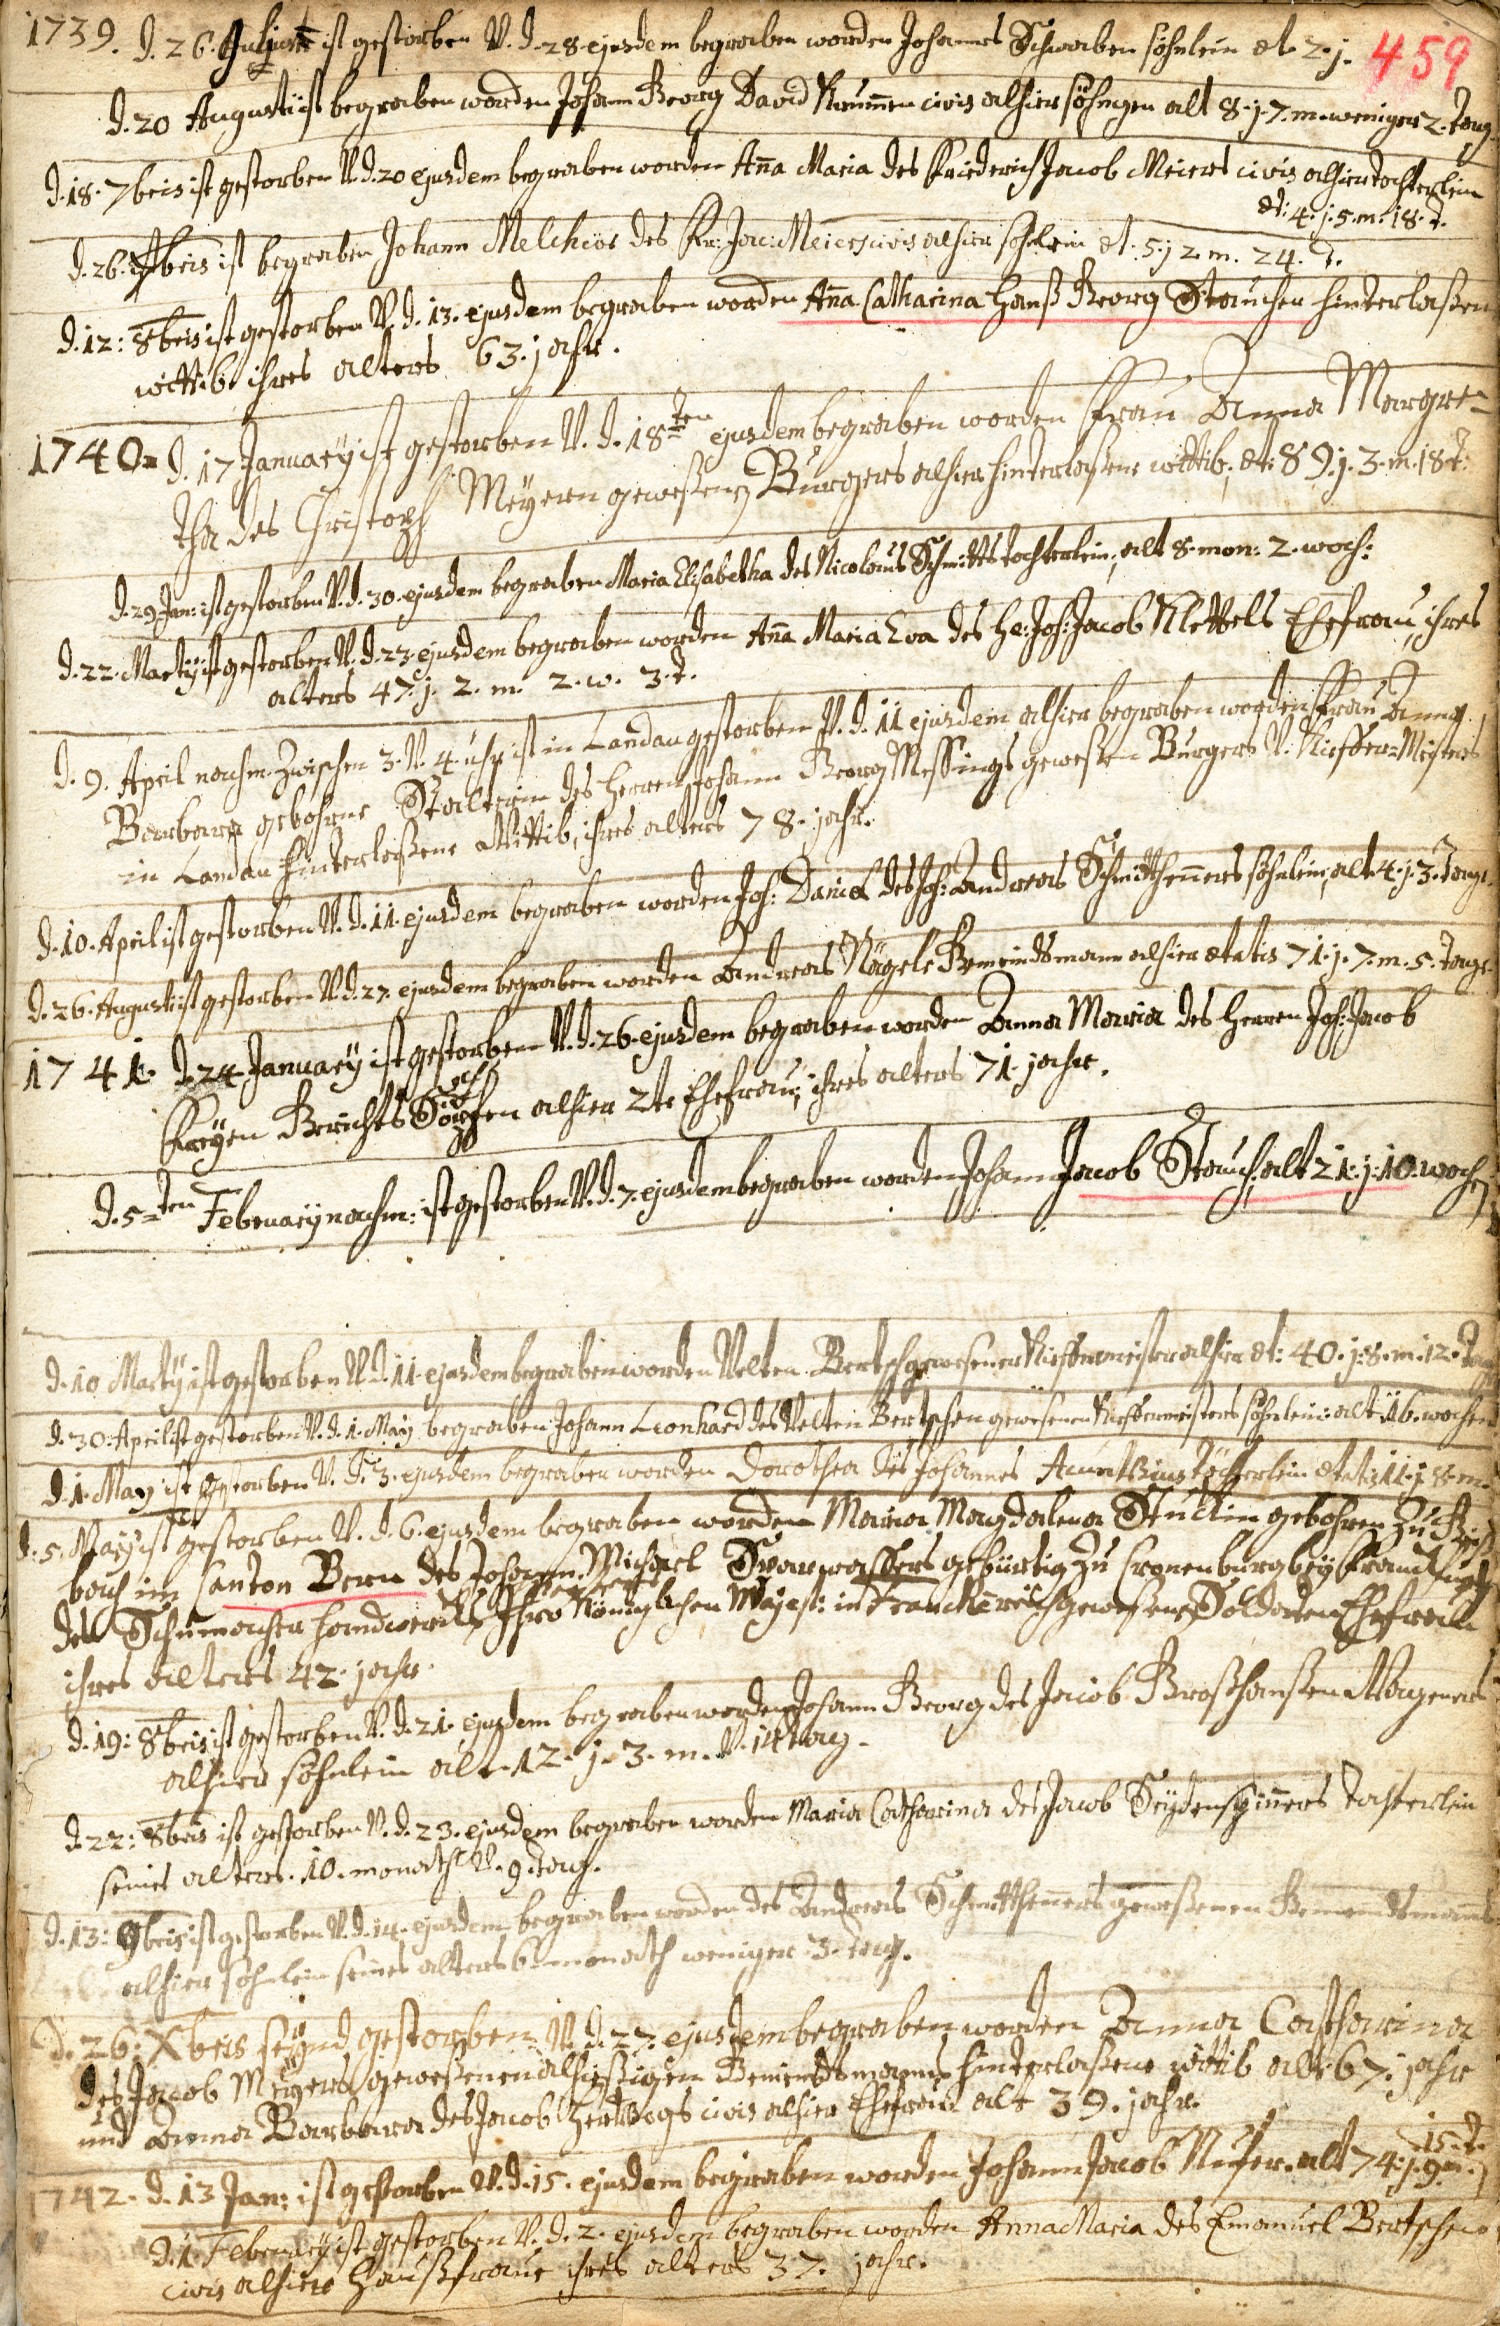 1739. d. 26. Julius ist gestorben u. d. 28 ejusdem begraben worden Johannes Schwaben söhnlein æt. 2. j. 459
d. 20 Augusti ist begraben worden Johann Georg David civis alhier söhngen alt 8. j. 7. m. weniger 2. Tag.
d. 18. 7bris ist gestorben u. d. 20 ejusdem begraben worden Aña Maria des Friederich Jacob Meiers civis alhier tochterlein
æt: 4. j. 5. m. 18. t.
d. 26. 7bris ist begraben Johann Melchior des Fr: Jac: Meiers civis alhier söhnlein æt. 5. j 2. m. 24. T.
d. 12: 8bris ist gestorben u. d. 13. ejusdem begraben worden Aña Catharina Hanß Georg Stauchen hinterlaßene
wittib ihres alters 63. jahr.
1740. d. 17 January ist gestorben u. d. 18ten ejusdem begraben worden Frau Anna Margre-
tha des Christoph Meyern geweßenen Burgers alhier hinterlaßene wittib, æt: 89. j. 3. m. 18 t.
d. 29. Jan: ist gestorben u. d. 30. ejusdem begraben Maria Elisabetha des Nicolaus Schmitts tochterlein, alt 8. mon: 2. woch:
d. 22. Martÿ ist gestorben u. d. 23. ejusdem begraben worden Aña Maria Eva des He: Joh: Jacob Klettels Ehefrau, ihres
alters 47. j. 2. m. 2. w. 3. t.
d. 9. April nachm. zwischen 3. u. 4. uhr ist in Landau gestorben u. d. 11 ejusdem alhier begraben worden Frau Anna
Barbara gebohrne Stalterin des Herren Johann Georg Messings geweßen Burgers u. Kieffer-Meisters
in Landau hinterlaßene Wittib, ihres alters 78. jahr.
d. 10. April ist gestorben u. d. 11. ejusdem begraben worden Joh: Daniel des Joh: Andreas Schmitthenners söhnlein, alt 4. j. 3. Tage.
d. 26. Augusti ist gestorben u. d. 27. ejusdem begraben worden Andreas Nägele Gemeindsmann alhier ætatis 71. j. 7. m. 5. tage.
1741. d. 24 January ist gestorben u. d. 26. ejusdem begraben worden Anna Maria des Herren Joh: Jacob
Freyen Gerichts alhier 2te Ehefrau, ihres alters 71. jahr.
d. 5ten February nachm: ist gestorben u. d. 7. ejusdem begraben worden Johann Jacob Stauch, alt 21. j. 10. wochen
d. 10 Martÿ ist gestorben u. d. 11. ejusdem begraben worden Velten Bertsch gewesener Kieffermeister alhier æt: 40. j. 8. m. 12. Tag
d. 30. April ist gestorben u. d. 1. May begraben Johann Leonhard des Velten Bertschen gewesenen Kieffermeisters söhnlein: alt 16. wochen
d. 1. May ist gestorben u. d. 3. ejusdem begraben worden Dorothea des Johannes töchterlein ætatis 11. j. 8. m.
d. 5. May ist gestorben u. d. 6. ejusdem begraben worden Maria Magdalena gebohren zu
bach im Canton Bern des Johann Michael gebürtig zu Cronenburg bey Franckfurt
des Schumacher handwercks Ihro Königlichen Majest: in Franckereich gewesenen Soldaten Eheweib
ihres alters 42. jahr.
d. 19: 8bris ist gestorben u. d. 21. ejusdem begraben worden Johann Georg des Jacob Großhanßen Wageners
alhier söhnlein alt 12. j. 3. m. u. 14 tag.
d. 22: 8bris ist gestorben u. d. 23. ejusdem begraben worden Maria Catharina des Jacob Seydenspiners tochterlein
seines alters. 10. monath u. 9. tag.
d. 13: 9bris ist gestorben u. d. 14. ejusdem begraben worden des Andreas Schmitthenners geweßenen Gemeindsmanns
alhier söhnlein seines alters 6 monath weniger 3. tag.
d. 26: Xbris seynd gestorben u. d. 27. ejusdem begraben worden Anna Catharina
des Jacob Meyers geweßenen alhießigen Gemeindsmanns hinterlaßene wittib alt 67. jahr
und Anna Barbara des Jacob Hertwegs civis alhier Ehefrau alt 39. jahr.
1742. d. 13 Jan: ist gestorben u. d. 15. ejusdem begraben worden Johann Jacob Nufer. alt 74. j. 9 m. 15. t.
d. 1. February ist gestorben u. d. 2. ejusdem begraben worden Anna Maria des Emanuel Bertschen
civis alhier Haußfraue ihres alters 37. jahr.